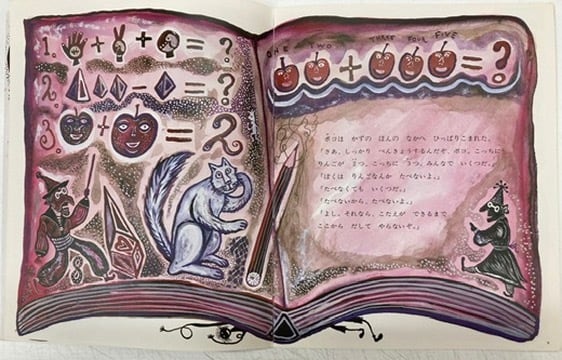 1. + + = ?
2. - = ?
3. + = 2
ONE TWO THREE FOUR FIVE
+ = ?
ポコは かずの ほんの なかへ ひっぱりこまれた。
「さあ、しっかり べんきょうするんだぞ、ポコ。こっちに
りんごが 2つ、こっちに 3つ、みんなで いくつだ。」
「ぼくは りんごなんか たべないよ。」
「たべなくても いくつだ。」
「たべないから、たべないよ。」
「よし、それなら、こたえが できるまで
ここから だして やらないぞ。」